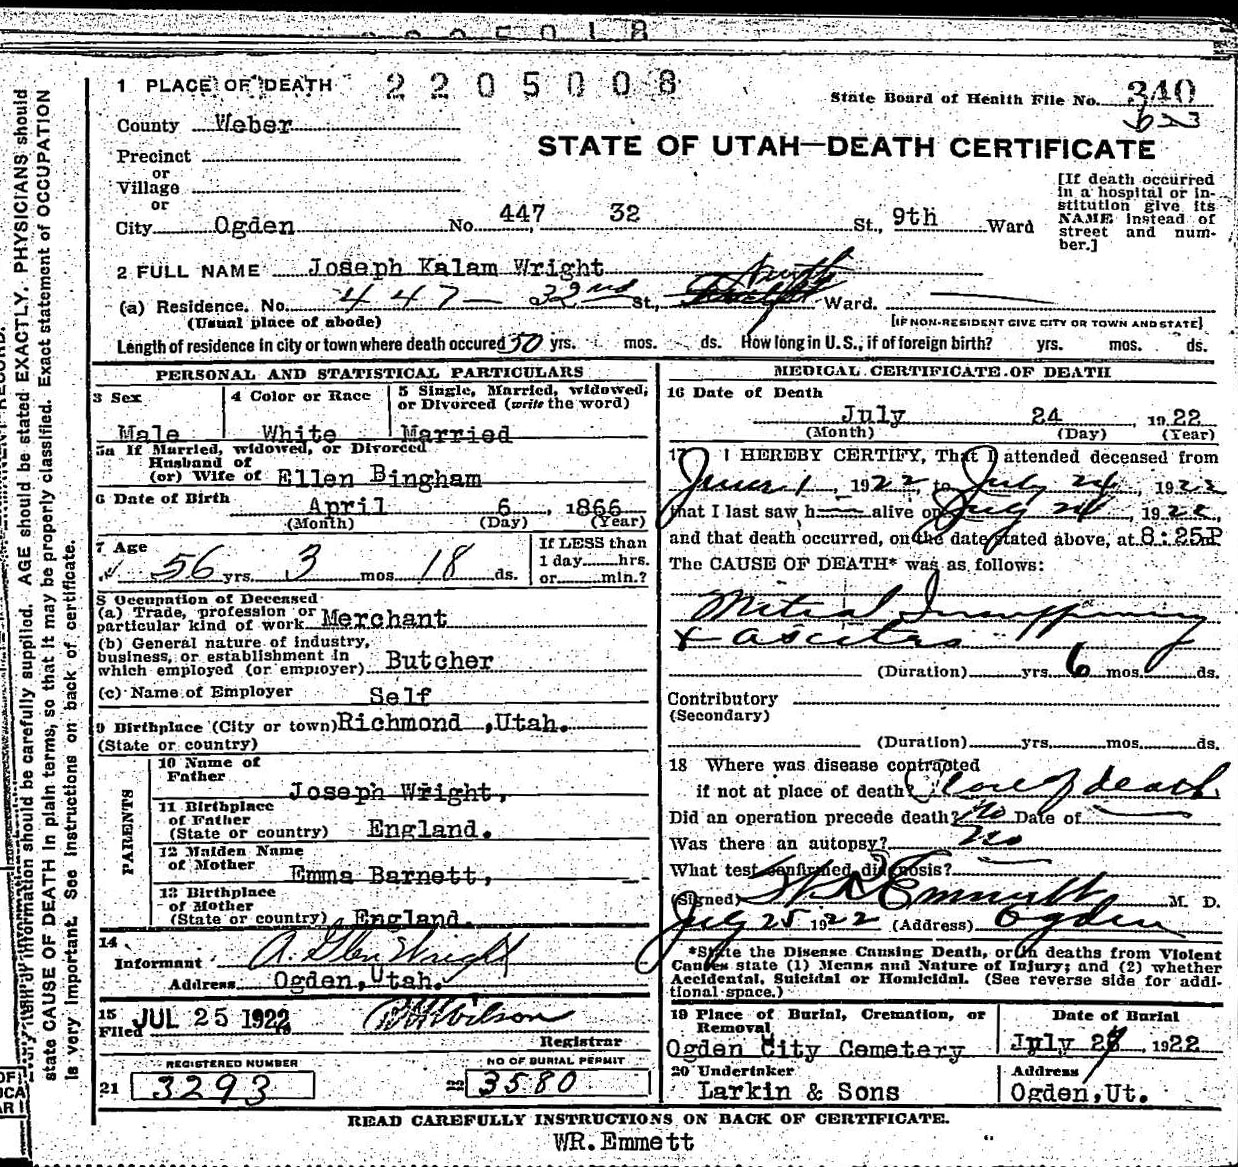 1 PLACE OF DEATH 2205008
State Board of Health File No. 340
623
County Weber
STATE OF UTAH—DEATH CERTIFICATE
Precinct
or
Village
or
City Ogden No. 447 32 St., 9th Ward
[If death occurred in a hospital or institution give its NAME instead of street and number.]
2 FULL NAME Joseph Kalam Wright
(a) Residence. No. 447 — 32nd St., Ward.
(Usual place of abode) [IF NON-RESIDENT GIVE CITY OR TOWN AND STATE]
Length of residence in city or town where death occured 50 yrs. mos. ds. How long in U.S., if of foreign birth? yrs. mos. ds.
PERSONAL AND STATISTICAL PARTICULARS
3 Sex 4 Color or Race 5 Single, Married, widowed,
or Divorced (write the word)
Male White Married
5a If Married, widowed, or Divorced
Husband of
(or) Wife of Ellen Bingham
6 Date of Birth April 6, 1866
(Month) (Day) (Year)
7 Age If LESS than
56 yrs. 3 mos. 18 ds. 1 day hrs.
or min.?
8 Occupation of Deceased
(a) Trade, profession or
particular kind of work Merchant
(b) General nature of industry,
business, or establishment in
which employed (or employer) Butcher
(c) Name of Employer Self
9 Birthplace (City or town) Richmond ,Utah.
(State or country)
PARENTS
10 Name of
Father Joseph Wright,
11 Birthplace
of Father
(State or country) England.
12 Maiden Name
of Mother Emma Barnett,
13 Birthplace
of Mother
(State or country) England.
14
Informant A. Glen Wright
Address Ogden, Utah.
15 JUL 25 1922
Filed Wilson
Registrar
REGISTERED NUMBER NO OF BURIAL PERMIT
21 3293 22 3580
MEDICAL CERTIFICATE OF DEATH
16 Date of Death
July 24 1922
(Month) (Day) (Year)
17 I HEREBY CERTIFY, That I attended deceased from
June 1, 1922, to July 24, 1922
that I last saw h alive on July 24, 1922,
and that death occurred, on the date stated above, at 8:25P m
The CAUSE OF DEATH* was as follows:
Mitral Insufficiency
+ ascites
(Duration) yrs. 6 mos. ds.
Contributory
(Secondary)
(Duration) yrs. mos. ds.
18 Where was disease contracted
if not at place of death? Place of death
Did an operation precede death? No Date of
Was there an autopsy? no
What test confirmed diagnosis?
(Signed) Emmett M. D.
July 25 1922 (Address) Ogden
*State the Disease Causing Death, or in deaths from Violent
Causes state (1) Means and Nature of Injury; and (2) whether
Accidental, Suicidal or Homicidal. (See reverse side for addi-
tional space.)
19 Place of Burial, Cremation, or Date of Burial
Removal
Ogden City Cemetery July 27, 1922
20 Undertaker Address
Larkin & Sons Ogden,Ut.
READ CAREFULLY INSTRUCTIONS ON BACK OF CERTIFICATE.
WR.Emmett
information should be carefully supplied. AGE should be stated EXACTLY. PHYSICIANS should
state CAUSE OF DEATH in plain terms, so that it may be properly classified. Exact statement of OCCUPATION
is very important. See instructions on back of certificate.